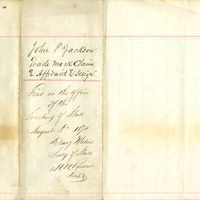 John P. Jackson
Trade Mark Claim
& Affidavit & Design
Filed in the office
of the
Secretary of State
August 1st 1871
Secy of State
Deputy